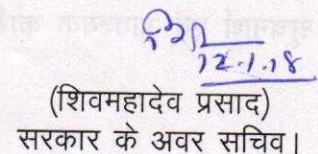 12.1.18
(शिवमहादेव प्रसाद)
सरकार के अवर सचिव।